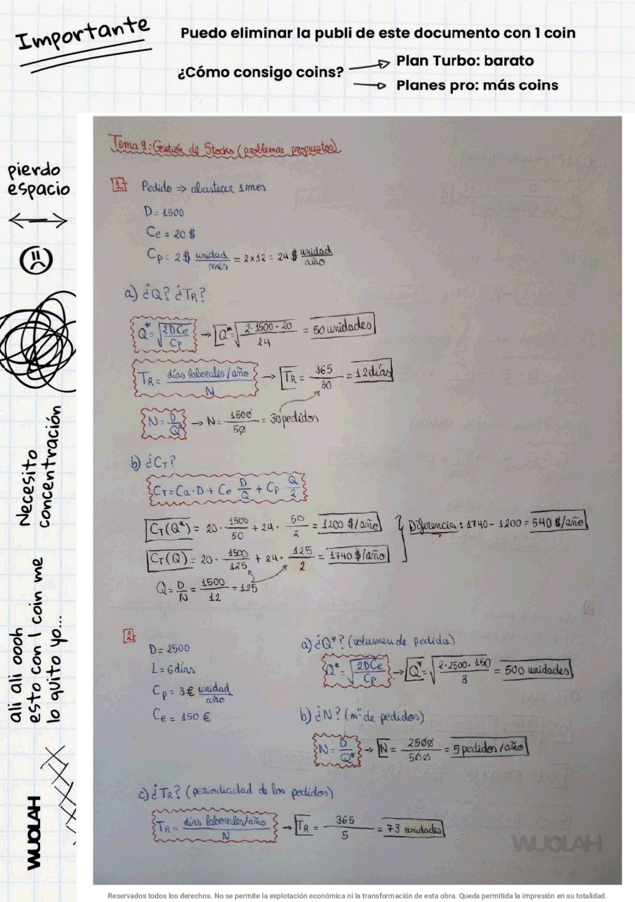 Importante
Puedo eliminar la publi de este documento con 1 coin
¿Cómo consigo coins?
Plan Turbo: barato
Planes pro: más coins
pierdo
espacio
Necesito
concentración
ali ali oooh
esto con 1 coin me
lo quito yo...
WUOLAH
Tema 9: Gestión de Stocks (problemas propuestos)
1 Pedido ⇒ abastecer 1 mes
D = 1500
Ce = 20 $
Cp = 2 $ unidad/mes = 2x12 = 24 $ unidad/año
a) ¿Q? ¿TR?
Q* = √(2DCe/Cp) → Q* = √(2·1500·20/24) = 50 unidades
TR = días laborales/año / N → TR = 365/30 = 12 días
N = D/Q* → N = 1500/50 = 30 pedidos
b) ¿CT?
CT = Ca·D + Ce D/Q + Cp Q/2
CT(Q*) = 20 · 1500/50 + 24 · 50/2 = 1200 $/año
CT(Q) = 20 · 1500/125 + 24 · 125/2 = 1740 $/año
Diferencia: 1740 - 1200 = 540 $/año
Q = D/N = 1500/12 = 125
2
D = 2500
L = 6 días
Cp = 3 € unidad/año
Ce = 150 €
a) ¿Q*? (volumen de pedido)
Q* = √(2DCe/Cp) → Q* = √(2·2500·150/3) = 500 unidades
b) ¿N? (nº de pedidos)
N = D/Q* → N = 2500/500 = 5 pedidos/año
c) ¿TR? (periodicidad de los pedidos)
TR = días laborales/año / N → TR = 365/5 = 73 unidades
WUOLAH
Reservados todos los derechos. No se permite la explotación económica ni la transformación de esta obra. Queda permitida la impresión en su totalidad.